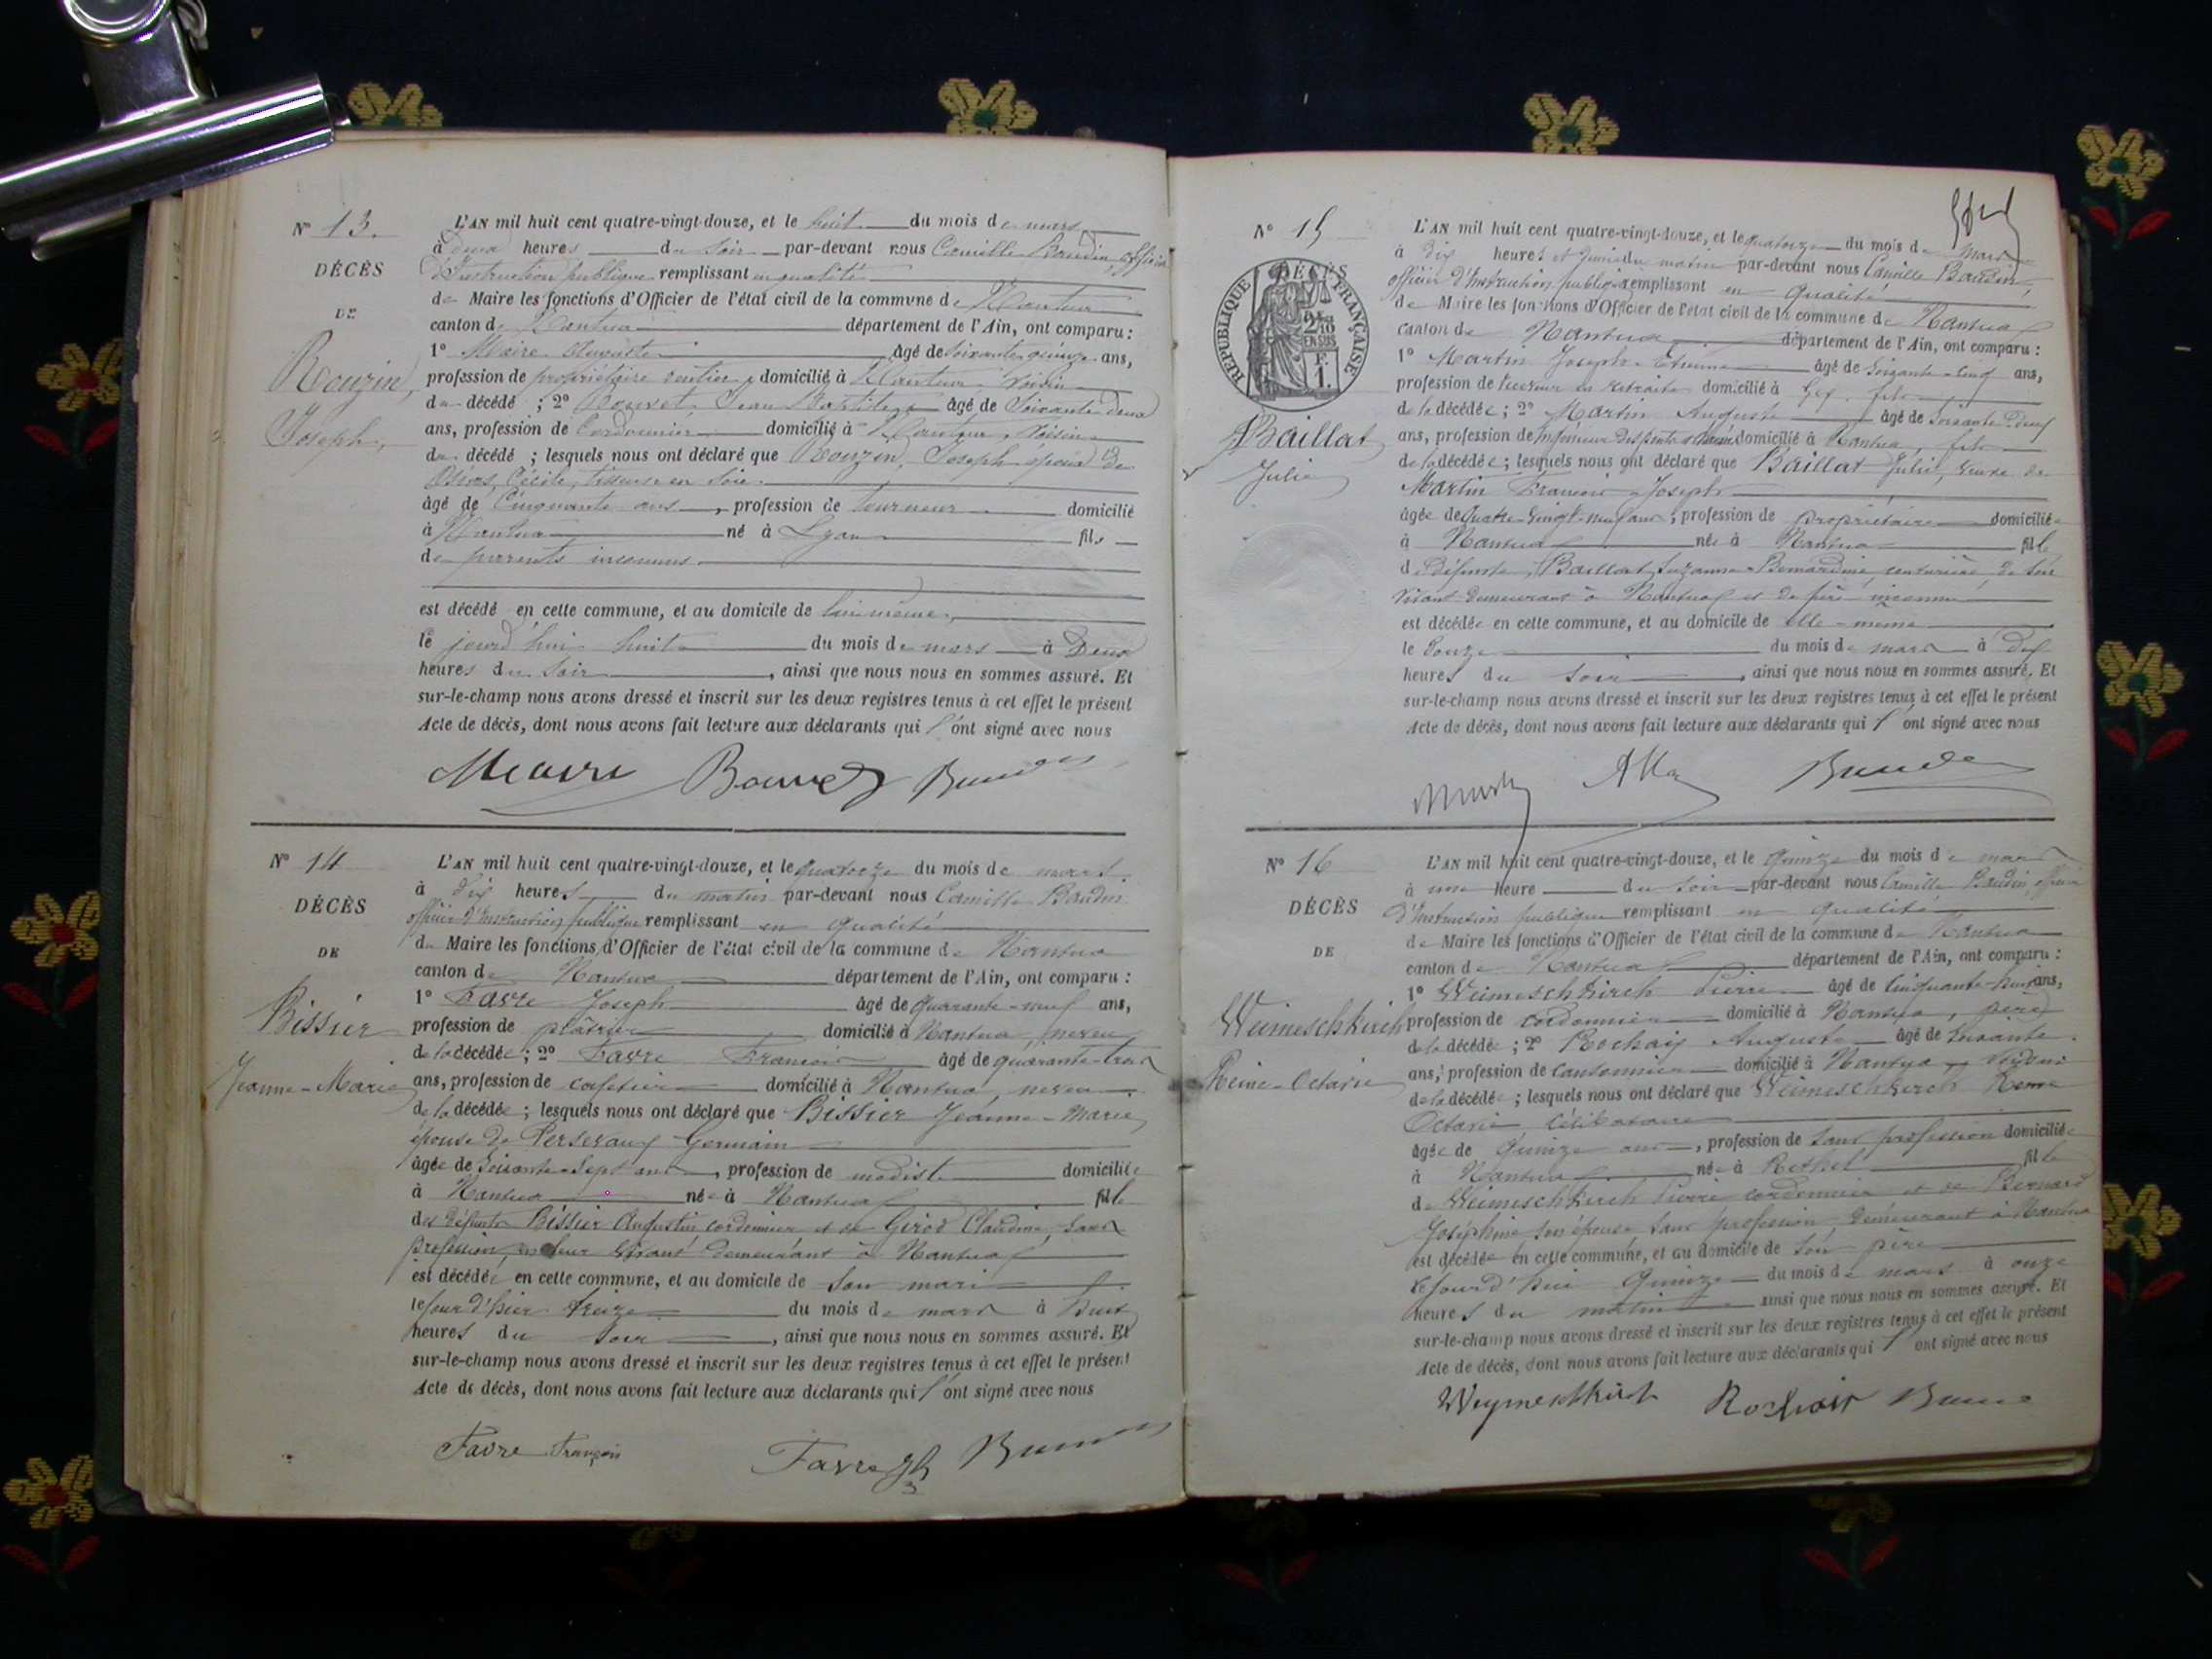 N° 13.
DÉCÈS
DE
Rouzin,
Joseph,
L'AN mil huit cent quatre-vingt-douze, et le huit du mois de mars
à deux heures du soir par-devant nous Camille Baudin, officier
d'Instruction publique remplissant en qualité
de Maire les fonctions d'Officier de l'état civil de la commune de Nantua
canton de Nantua département de l'Ain, ont comparu :
1° âgé de soixante-quinze ans,
profession de propriétaire rentier, domicilié à Nantua, voisin
du décédé ; 2° Bouvet, Jean Baptiste âgé de soixante-deux
ans, profession de Cordonnier domicilié à Nantua, voisin
du décédé ; lesquels nous ont déclaré que Rouzin, Joseph époux de
Cécile, tisseuse en soie
âgé de Cinquante ans, profession de tourneur domicilié
à Nantua né à Lyon fils
de parents inconnus
est décédé en cette commune, et au domicile de lui-même,
le jourd'hui huit du mois de mars à Deux
heures du soir, ainsi que nous nous en sommes assuré. Et
sur-le-champ nous avons dressé et inscrit sur les deux registres tenus à cet effet le présent
Acte de décès, dont nous avons fait lecture aux déclarants qui l'ont signé avec nous
Bouvet
N° 14
DÉCÈS
DE
Bissier
Jeanne-Marie
L'AN mil huit cent quatre-vingt-douze, et le quatorze du mois de mars
à dix heures du matin par-devant nous Camille Baudin
officier d'Instruction publique remplissant en qualité
de Maire les fonctions d'Officier de l'état civil de la commune de Nantua
canton de Nantua département de l'Ain, ont comparu :
1° Favre Joseph âgé de quarante-neuf ans,
profession de plâtrier domicilié à Nantua, neveu
de la décédée ; 2° Favre François âgé de quarante-trois
ans, profession de cafetier domicilié à Nantua, neveu
de la décédée ; lesquels nous ont déclaré que Bissier Jeanne-Marie
épouse de Germain
âgée de soixante-sept ans, profession de modiste domiciliée
à Nantua née à Nantua fille
des défunts Bissier Augustin cordonnier et de Girod Claudine, sans
profession, de leur vivant demeurant à Nantua
est décédée en cette commune, et au domicile de son mari
le jour d'hier treize du mois de mars à huit
heures du soir, ainsi que nous nous en sommes assuré. Et
sur-le-champ nous avons dressé et inscrit sur les deux registres tenus à cet effet le présent
Acte de décès, dont nous avons fait lecture aux déclarants qui l'ont signé avec nous
Favre François Favre
N° 15
DÉCÈS
RÉPUBLIQUE FRANÇAISE
2/10
EN SUS
F.
1.
Baillat
Julie
L'AN mil huit cent quatre-vingt-douze, et le quatorze du mois de mars
à dix heures et demie du matin par-devant nous Camille Baudin,
officier d'Instruction publique remplissant en qualité
de Maire les fonctions d'Officier de l'état civil de la commune de Nantua
canton de Nantua département de l'Ain, ont comparu :
1° Martin Joseph-Etienne âgé de soixante-cinq ans,
profession de receveur en retraite domicilié à Gex, fils
de la décédée ; 2° Martin Auguste âgé de soixante-deux
ans, profession de domicilié à Nantua, fils
de la décédée ; lesquels nous ont déclaré que Baillat Julie, veuve de
Martin François-Joseph
âgée de quatre-vingt-neuf ans, profession de propriétaire domiciliée
à Nantua née à Nantua fille
de défunte Baillat Suzanne-Bernardine, couturière, de son
vivant demeurant à Nantua et de père inconnu
est décédée en cette commune, et au domicile de elle-même
le douze du mois de mars à dix
heures du soir, ainsi que nous nous en sommes assuré. Et
sur-le-champ nous avons dressé et inscrit sur les deux registres tenus à cet effet le présent
Acte de décès, dont nous avons fait lecture aux déclarants qui l'ont signé avec nous
N° 16
DÉCÈS
DE
Weimeschkirch
Reine-Octavie
L'AN mil huit cent quatre-vingt-douze, et le quinze du mois de mars
à une heure du soir par-devant nous Camille Baudin, officier
d'Instruction publique remplissant en qualité
de Maire les fonctions d'Officier de l'état civil de la commune de Nantua
canton de Nantua département de l'Ain, ont comparu :
1° Weimeschkirch Pierre âgé de cinquante-huit ans,
profession de cordonnier domicilié à Nantua, père
de la décédée ; 2° Rochaix Auguste âgé de soixante
ans, profession de cantonnier domicilié à Nantua
de la décédée ; lesquels nous ont déclaré que Weimeschkirch Reine
Octavie célibataire
âgée de quinze ans, profession de sans profession domiciliée
à Nantua née à Rethel fille
de Weimeschkirch Pierre cordonnier et de Bernard
Joséphine son épouse sans profession, demeurant à Nantua
est décédée en cette commune, et au domicile de son père
le jourd'hui quinze du mois de mars à onze
heures du matin ainsi que nous nous en sommes assuré. Et
sur-le-champ nous avons dressé et inscrit sur les deux registres tenus à cet effet le présent
Acte de décès, dont nous avons fait lecture aux déclarants qui l'ont signé avec nous
Rochaix